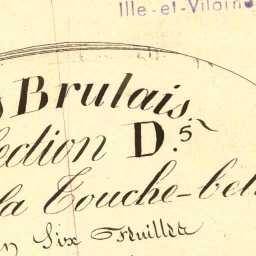 Ille-et-Vilaine
Brulais
Section D.5
la Touche-bel
en Six Feuilles